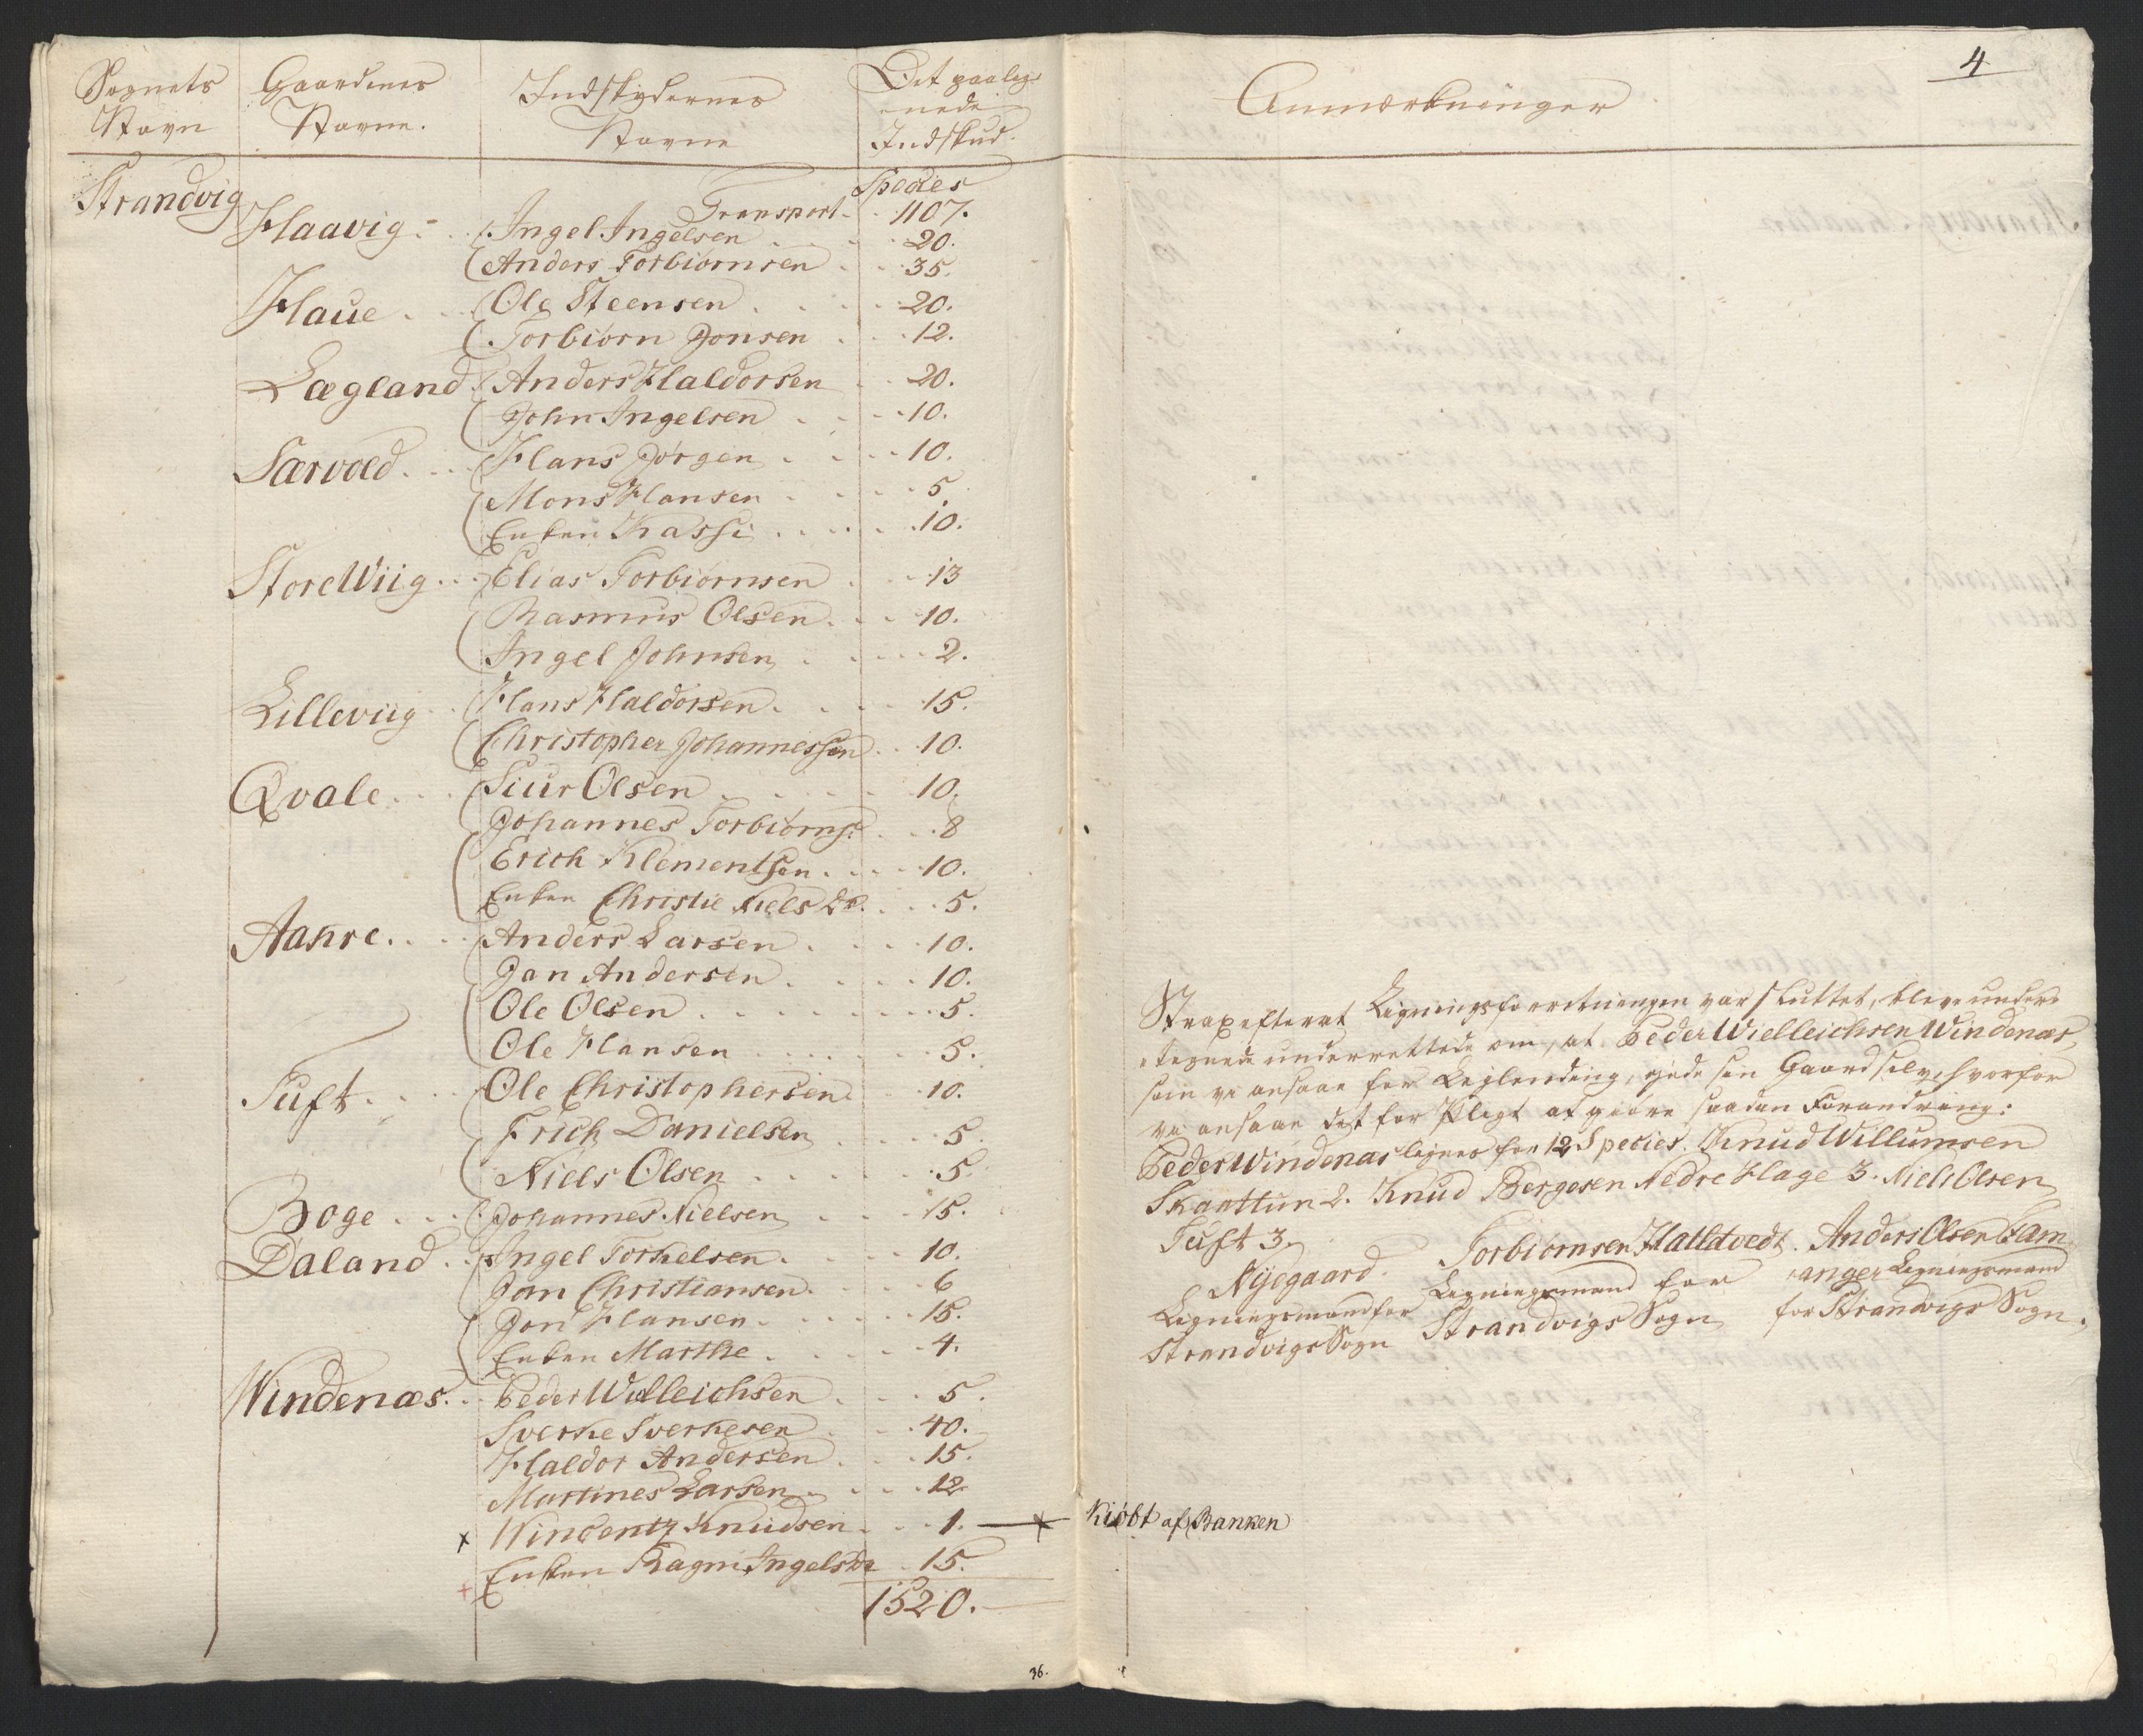 Sognets Navn | Gaardenes Navne. | Indskydernes Navne | Det paalignede Indskud.
Species
Strandvig Transport 1107.
Haavig Ingel Ingelsen 20.
Anders Torbiørnsen 35.
Haue Ole Steensen 20.
Torbiørn Jonsen 12.
Lægland Anders Haldorsen 20.
John Ingelsen 10.
Særvold Hans Jørgen 10.
Mons Hansen 5.
Enken Kassi 10.
Store Wiig Elias Torbiørnsen 13
Rasmus Olsen 10.
Ingel Johnsen 2.
Lilleviig Hans Haldorsen 15.
Christopher Johannessen 10.
Qvale Siur Olsen 10.
Johannes Torbiørns: 8
Erich Klementsen 10.
Enken Christie Niels Dr. 5.
Aakre Anders Larsen 10.
Jan Andersen 10.
Ole Olsen 5.
Ole Hansen 5.
Tuft Ole Christophersen 10.
Erich Danielsen 5.
Niels Olsen 5.
Boge Johannes Nielsen 15.
Daland Ingel Torkelsen 10.
Jan Christiansen 6
Jon Hansen 15.
Enken Marthe 4.
Windenæs Peder Willeichsen 5.
Sverke Sverkesen 40.
Haldor Andersen 15.
Martines Larsen 12
x Windentz Knudsen 1. — x Kiøbt af Banken
+ Enken Ragni Ingels Dr 15.
1520.
36.
4
Anmærkninger
Strax efterat Ligningsforretningen var sluttet, bleve under-
tegnede underrettede om, at Peder Wielleichsen Windenæs,
som vi ansaae for Leylending, ejede sin Gaard selv, hvorfor
vi ansaae det for Pligt at giøre saadan Forandring:
Peder Windenæs lignes for 12 Species. Knud Willumsen
Skaattun 2. Knud Bergesen Nedre Hage 3. Niels Olsen
Tuft 3.
Nyegaard. Torbiørnsen Halldtvedt. Anders Olsen Sam-
Ligningsmand for Ligningsmand for anger Ligningsmand
Strandvigs Sogn Strandvigs Sogn for Strandvigs Sogn.